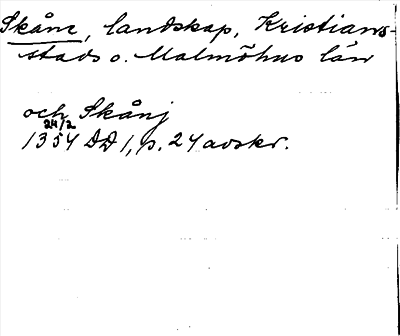 Skåne, landskap, Kristians-
stads o. Malmöhus län
och Skånj
24/2
1354 DD 1, p. 24 avskr.